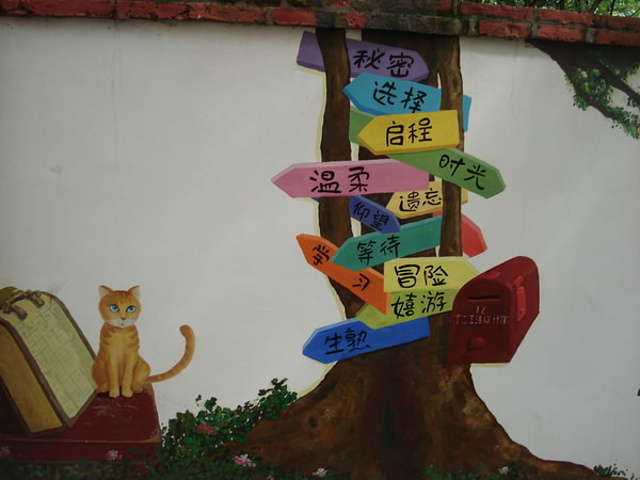 秘密
选择
启程
时光
温柔
遗忘
仰望
等待
学习
冒险
嬉游
生熟
12